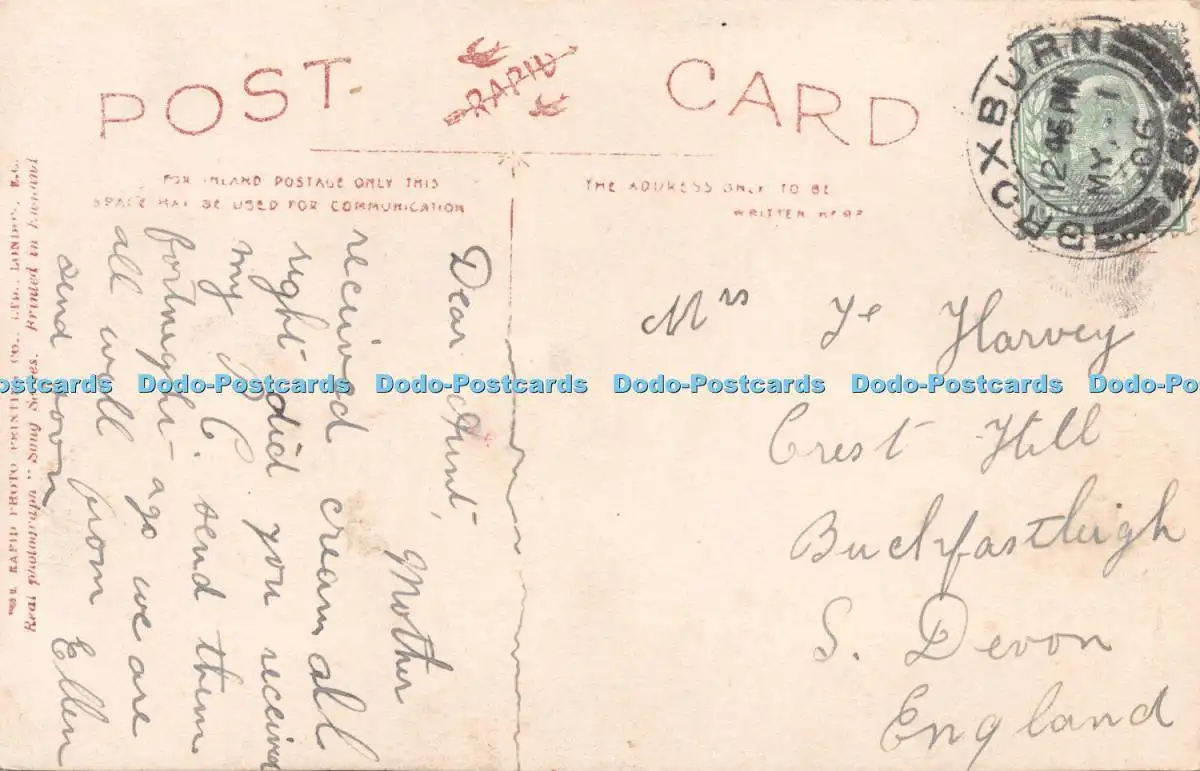 POST CARD
RAPID
FOR INLAND POSTAGE ONLY THIS
SPACE MAY BE USED FOR COMMUNICATION
THE ADDRESS ONLY TO BE
WRITTEN HERE
BROXBURN
12 45 PM
MY 1
06
Dear Aunt,
Mother
received cream all
right did you receive
my P C. send them
fortnight ago we are
all well from Ellen
send soon
Mrs Je Harvey
Crest Hill
Buckfastleigh
S. Devon
England
RAPID PHOTO PRINTING CO., LTD., LONDON, E.C.
Real photograph "Song Series. Printed in England
Dodo-Postcards Dodo-Postcards Dodo-Postcards Dodo-Postcards Dodo-Postcards